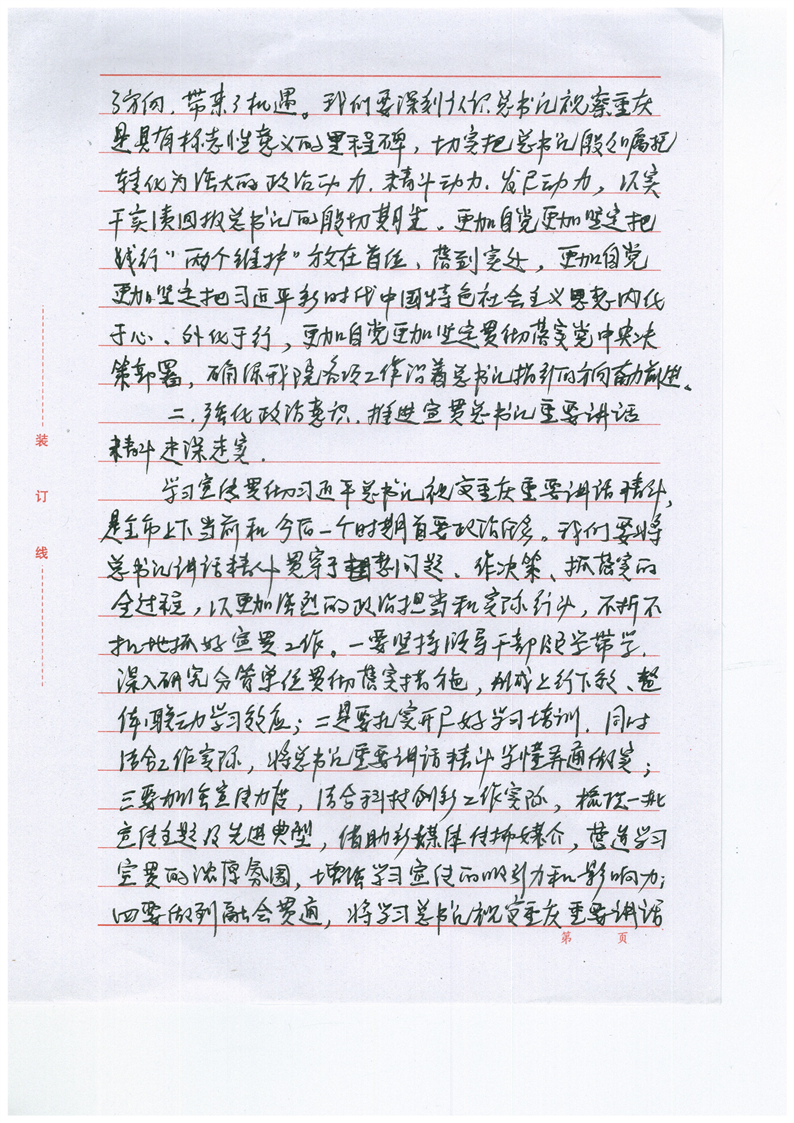 了方向，带来了机遇。我们要深刻认识总书记视察重庆
是具有标志性意义的里程碑，切实把总书记殷切嘱托
转化为强大的政治动力、精斗动力、发展动力，以实
干实绩回报总书记的殷切期望。更加自觉更加坚定把
践行“两个维护”放在首位、落到实处，更加自觉
更加坚定把习近平新时代中国特色社会主义思想内化
于心、外化于行，更加自觉更加坚定贯彻落实党中央决
策部署，确保我院各项工作沿着总书记指引的方向奋力前进。
二、强化政治意识，推进宣贯总书记重要讲话
精斗走深走实。
学习宣传贯彻习近平总书记视察重庆重要讲话精斗，
是全市上下当前和今后一个时期首要政治任务。我们要将
总书记讲话精斗贯穿于想问题、作决策、抓落实的
全过程，以更加强烈的政治担当和实际行动，不折不
扣地抓好宣贯工作。一要坚持领导干部领学带学，
深入研究分管单位贯彻落实措施，形成上行下效、整
体联动学习效应；二是要扎实开展好学习培训，同时
结合工作实际，将总书记重要讲话精斗学懂弄通做实；
三要加大宣传力度，结合科技创新工作实际，梳理一批
宣传主题及先进典型，借助新媒体传播媒介，营造学习
宣贯的浓厚氛围，增强学习宣传的吸引力和影响力；
四要做到融会贯通，将学习总书记视察重庆重要讲话
装
订
线
第 页